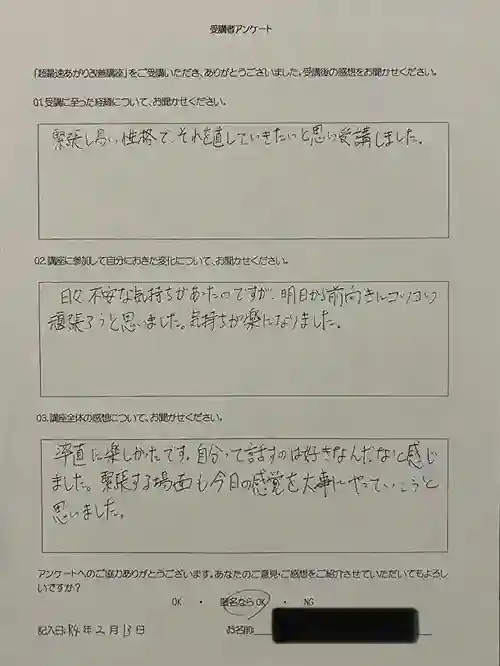 受講者アンケート
「超最速あがり改善講座」をご受講いただき、ありがとうございました。受講後の感想をお聞かせください。
Q1.受講に至った経緯について、お聞かせください。
緊張し易い性格で、それを直していきたいと思い受講しました。
Q2.講座に参加して自分におきた変化について、お聞かせください。
日々不安な気持ちがあったのですが、明日から前向きにコツコツ
頑張ろうと思いました。気持ちが楽になりました。
Q3.講座全体の感想について、お聞かせください。
率直に楽しかったです。自分って話すのは好きなんだなと感じ
ました。緊張する場面も今日の感覚を大事にやっていこうと
思いました。
アンケートへのご協力ありがとうございます。あなたのご意見・ご感想をご紹介させていただいてもよろし
いですか?
OK ・ 匿名ならOK ・ NG
記入日:R4年2月13日 お名前: